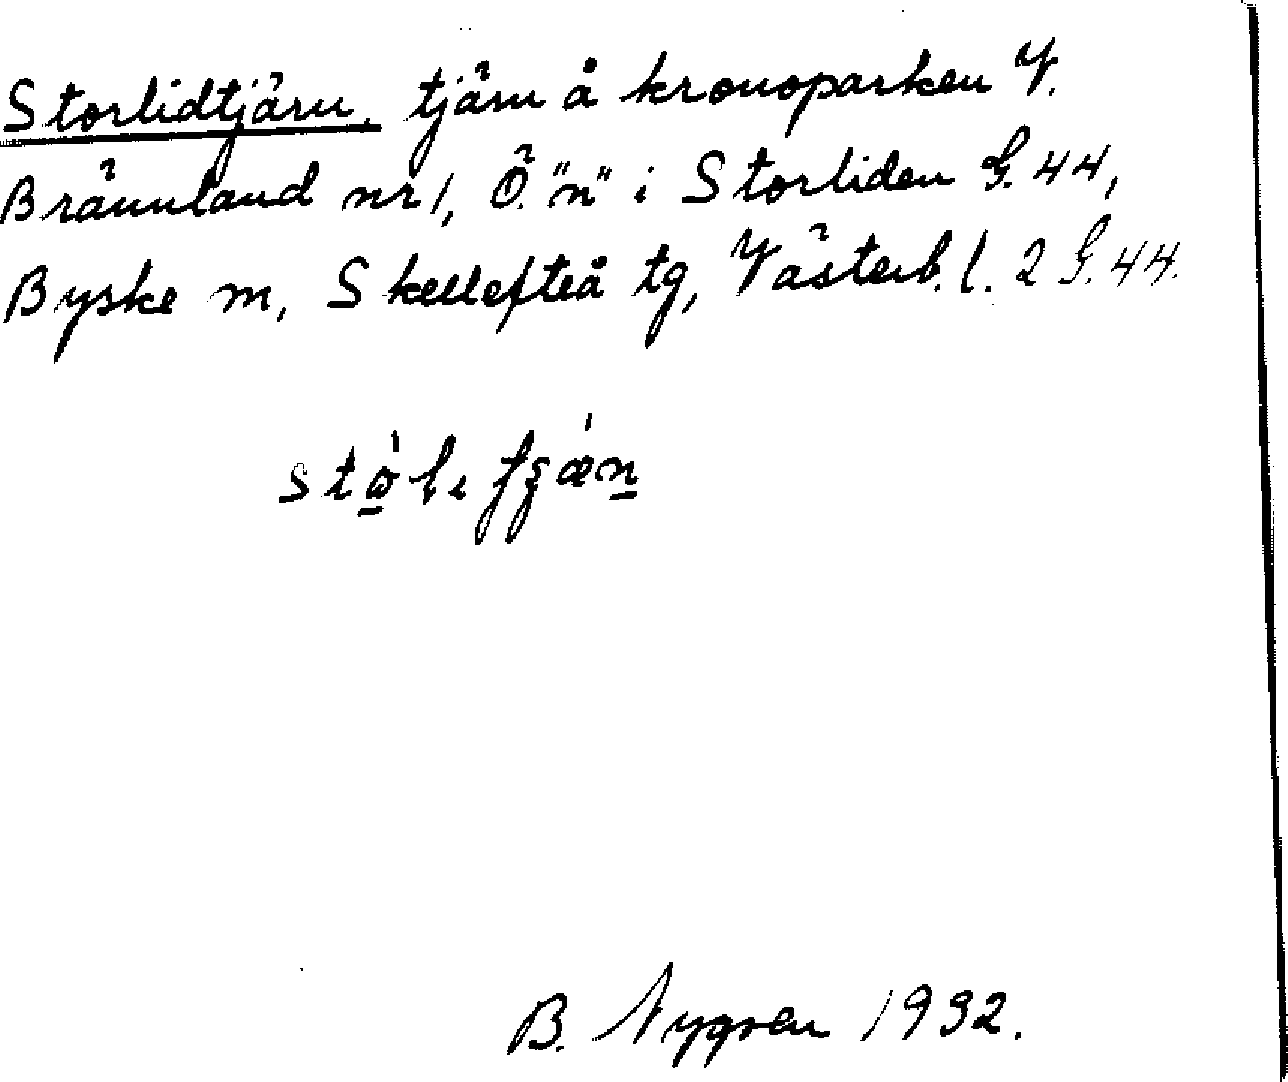 Storlidtjärn, tjärn å kronoparken V.
Brännland nr 1, Ö. "n" i Storliden G. 44,
Byske m, Skellefteå tg, Västerb. l. 2 G. 44.
B. Nygren 1932.